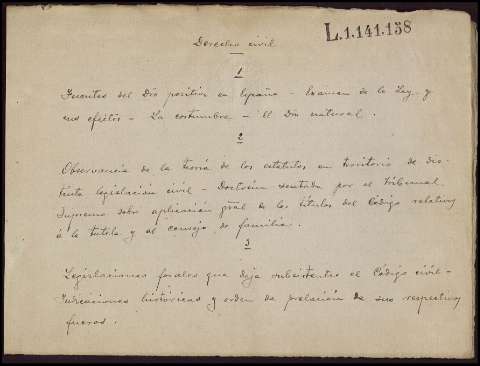 L.1.141.138
Derecho civil
1
Fuentes del Dro positivo en España - Examen de la Ley y
sus efectos - La costumbre - El Dro natural.
2
Observancia de la teoría de los estatutos en territorio de dis-
tinta legislación civil - Doctrina sentada por el Tribunal
Supremo sobre aplicación gral de los títulos del Código relativos
á la tutela y al consejo de familia.
3
Legislaciones forales que deja subsistentes el Código civil -
Indicaciones históricas y orden de prelación de sus respectivos
fueros.